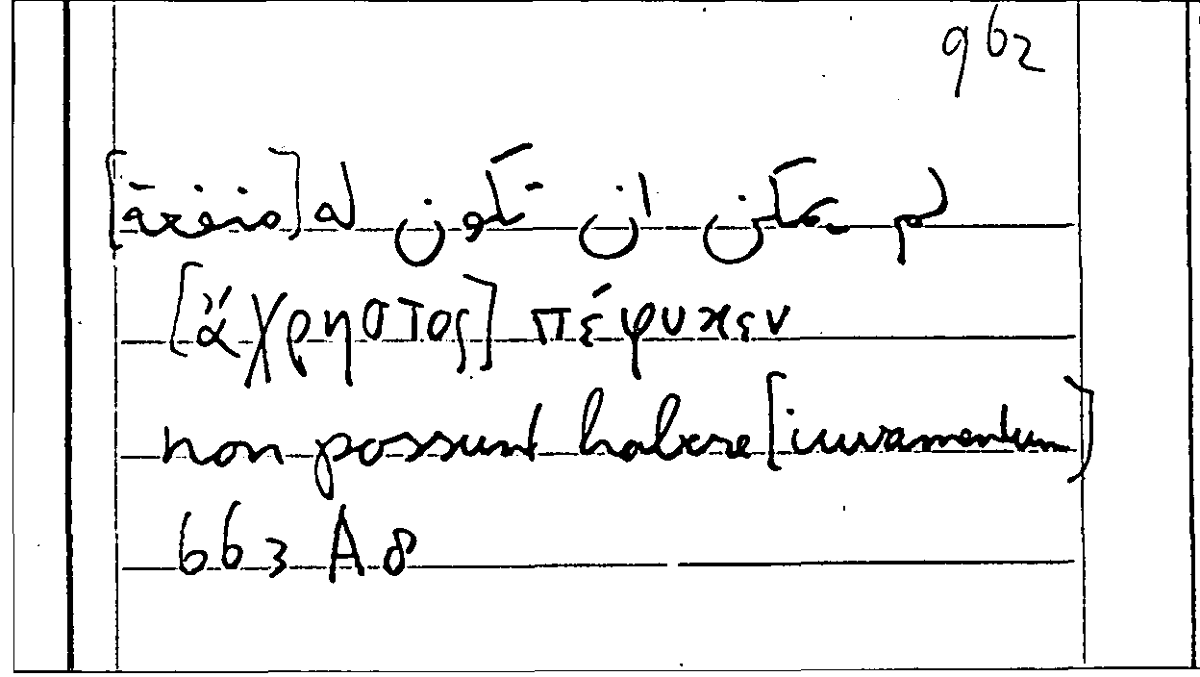 962
لم يمكن ان تكون له [منفعة]
[ἄχρηστος] πέφυκεν
non possunt habere [iuvamentum]
663 A 8